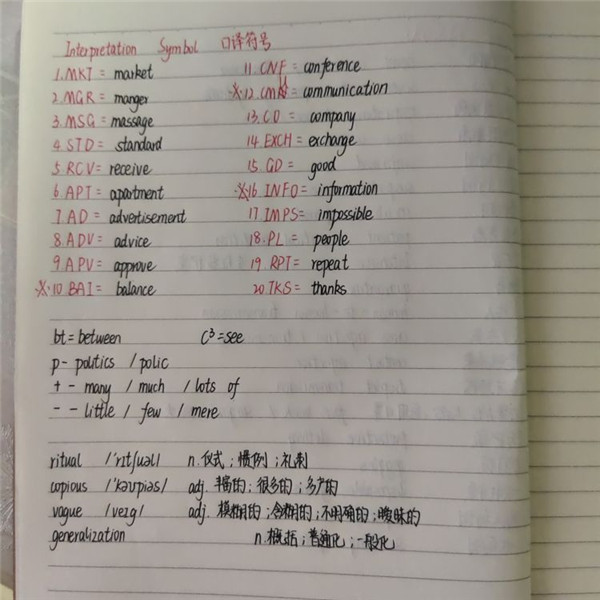 Interpretation Symbol 口译符号
1.MKT = market
2.MGR = manger
3.MSG = massage
4.STD = standard
5.RCV = receive
6.APT = apartment
7.AD = advertisement
8.ADV = advice
9.APV = approve
※10 BAI = balance
11.CNF = conference
※12.CMN = communication
13.CO = company
14.EXCH = exchange
15.GD = good
※16 INFO = information
17.IMPS = impossible
18.PL = people
19.RPT = repeat
20.TKS = thanks
bt = between C³ = see
p - politics / polic
+ - many / much / lots of
- - little / few / mere
ritual /'rɪtʃuəl/ n.仪式;惯例;礼制
copious /'kəʊpiəs/ adj. 丰富的;很多的;多产的
vague /veɪg/ adj. 模糊的;含糊的;不明确的;暧昧的
generalization n.概括;普遍化;一般化